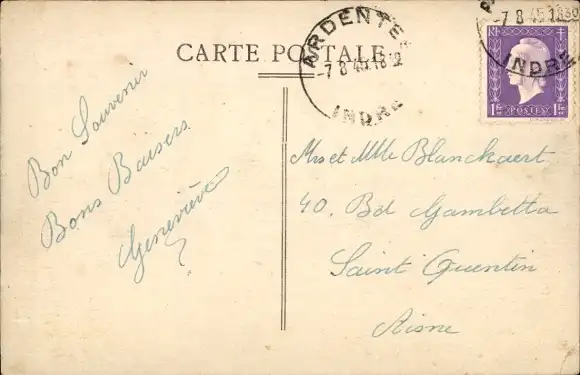 CARTE POSTALE
ARDENTES
-7 8 45.18
INDRE
-7 8 45.1830
INDRE
RF
1F
POSTES
1F
Bon Souvenir
Bons Baisers
Geneviève
Mrs et Mlle Blanckaert
40. Bd Gambetta
Saint Quentin
Aisne